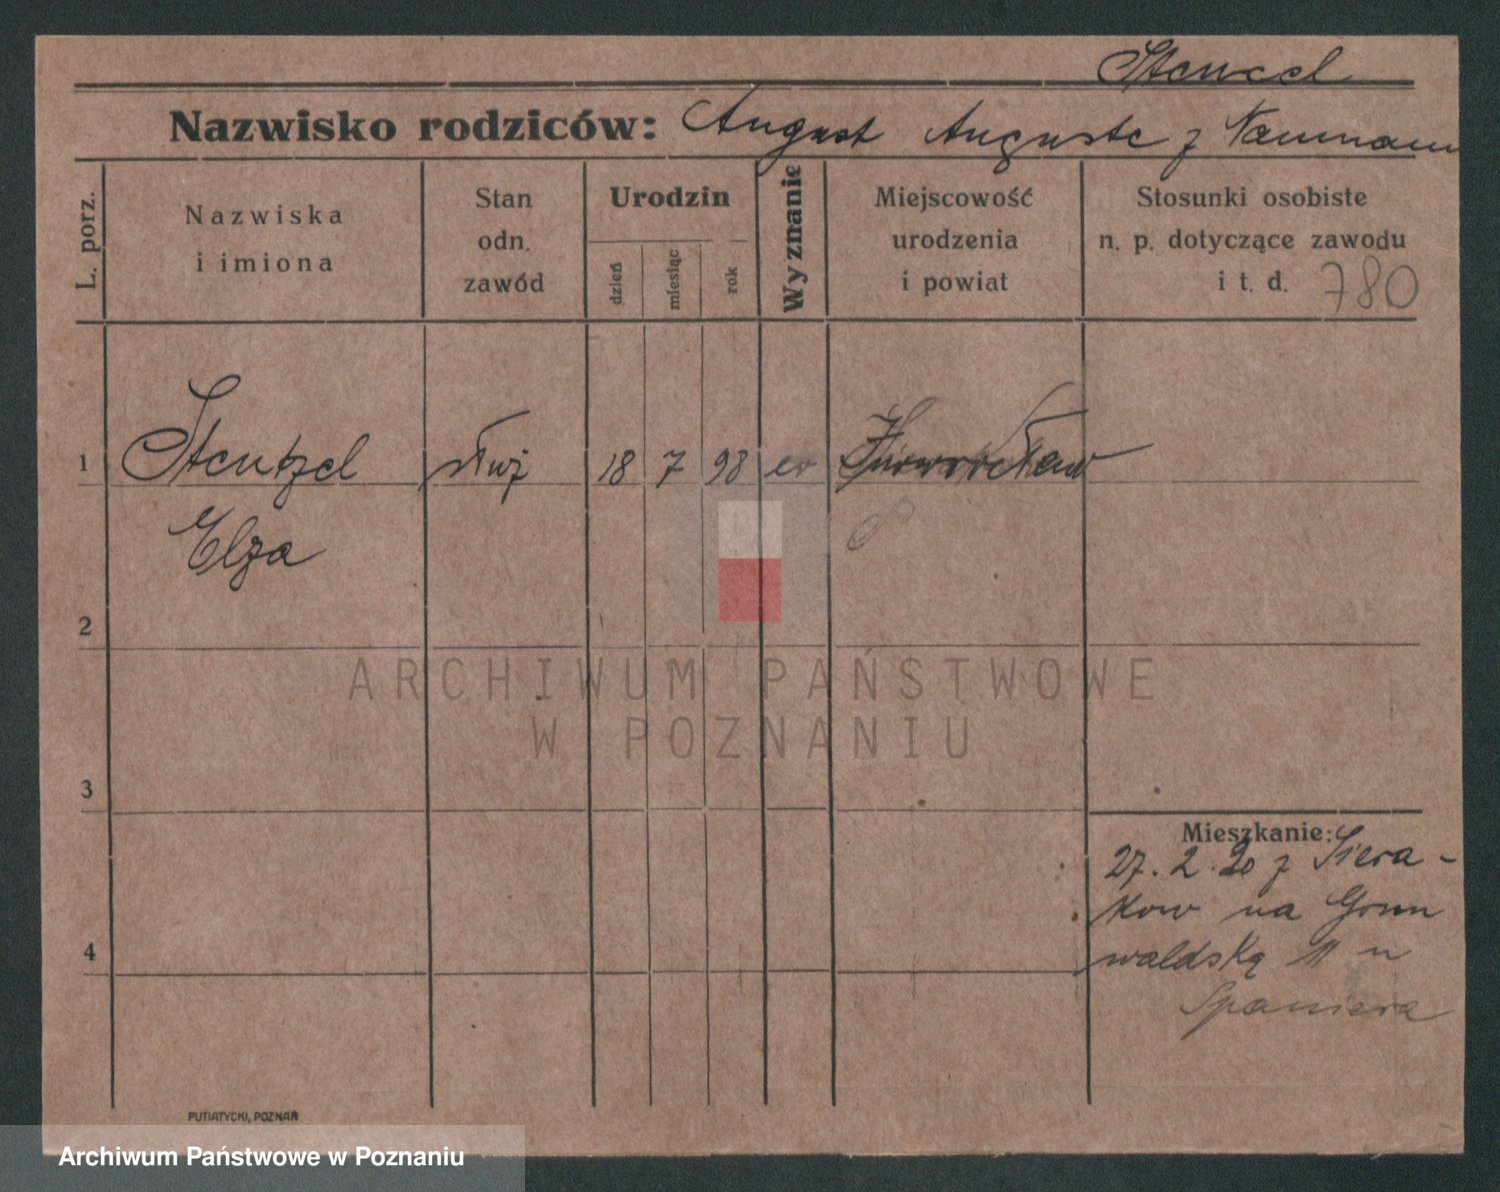 Stencel
Nazwisko rodziców: August Auguste z Naumann
L. porz.
Nazwiska
i imiona
Stan
odn.
zawód
Urodzin
dzień
miesiąc
rok
Wyznanie
Miejscowość
urodzenia
i powiat
Stosunki osobiste
n. p. dotyczące zawodu
i t. d. 780
1 Stentzel służ 18 7 98 ew Inowrocław
Elza
2
ARCHIWUM PAŃSTWOWE
W POZNANIU
3
Mieszkanie:
27. 2. 20 z Siera-
kow na Grun
waldską 11 u
4
Spaniera
PUTIATYCKI, POZNAŃ
Archiwum Państwowe w Poznaniu